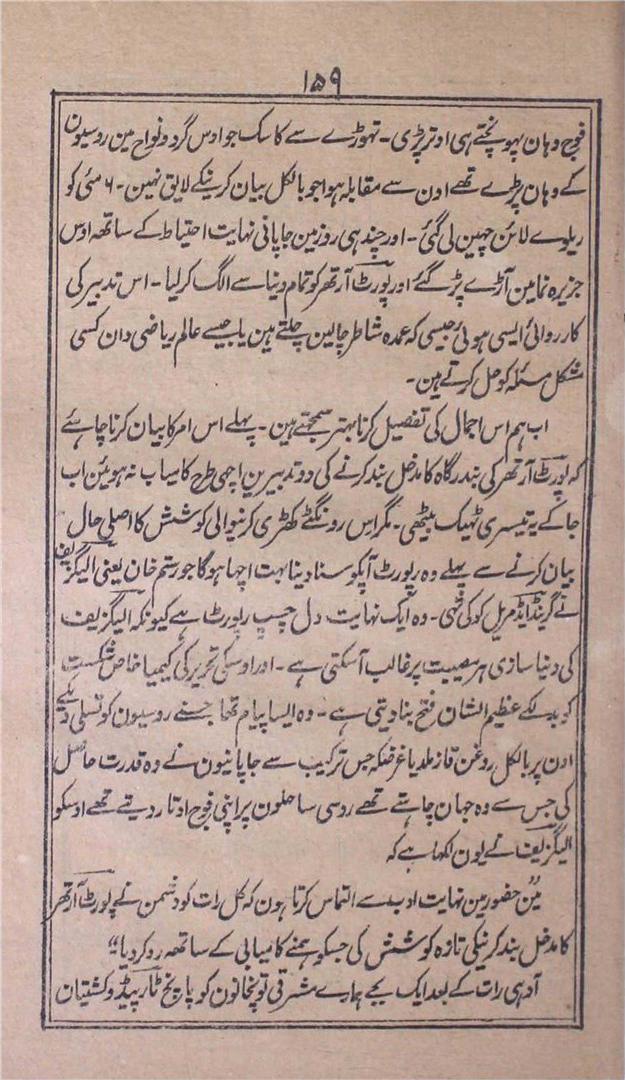 ۱۵۹
فوج وہان پہونچتے ہی اوتر پڑی۔ تہوڑے سے کاسک جو اوس گرد ونواح مین روسیون
کے وہان پڑے تھے اون سے مقابلہ ہوا جو بالکل بیان کرنیکے لایق نہین۔ ۶ مئی کو
ریلوے لائن چہین لی گئی۔ اور چند ہی روز مین جاپانی نہایت احتیاط کے ساتھہ اوس
جزیرہ نما مین آڑے پڑ گئے اور پورٹ آرتھر کو تمام دنیا سے الگ کر لیا۔ اس تدبیر کی
کارروائی ایسی ہوئی جیسی کہ عمدہ شاطر چالین چلتے ہین یا جیسے عالم ریاضی دان کسی
مشکل مسئلہ کو حل کرتے ہین۔
اب ہم اس اجمال کی تفصیل کرنا بہتر سمجھتے ہین۔ پہلے اس امر کا بیان کرنا چاہئے
کہ پورٹ آرتھر کی بندرگاہ کا مدخل بند کرنے کی دو تدبیرین اچہی طرح کامیاب نہ ہوئین اب
جا کے یہ تیسری ٹھیک بیٹھی۔ مگر اس رونگٹے کھڑی کرنیوالی کوشش کا اصلی حال
بیان کرنے سے پہلے وہ رپورٹ آپکو سنا دینا بہت اچہا ہوگا جو رستم خان یعنی الیگزیف
نے گرینڈ ایڈمریل کو کی تہی۔ وہ ایک نہایت دل چسپ رپورٹ ہے کیونکہ الیگزیف
کی دنیا سازی ہر مصیبت پر غالب آسکتی ہے۔ اور اوسکی تحریر کی کیمیا خاص شکست
کو بدلکے عظیم الشان فتح بنا دیتی ہے۔ وہ ایسا پیام تھا جسنے روسیون کو تسلی دیکے
اون پر بالکل روغن قاز ملدیا غرضکہ جس ترکیب سے جاپانیون نے وہ قدرت حاصل
کی جس سے وہ جہان چاہتے تھے روسی ساحلون پر اپنی فوج اوتار دیتے تھے اوسکو
الیگزیف نے یون لکھا ہے کہ
"مین حضور مین نہایت ادب سے التماس کرتا ہون کہ کل رات کو دشمن نے پورٹ آرتھر
کا مدخل بند کرنیکی تازہ کوشش کی جسکو ہمنے کامیابی کے ساتھہ رد کر دیا"
آدہی رات کے بعد ایک بجے ہمارے مشرقی توپخانون کو پانچ ٹارپیڈو کشتیان